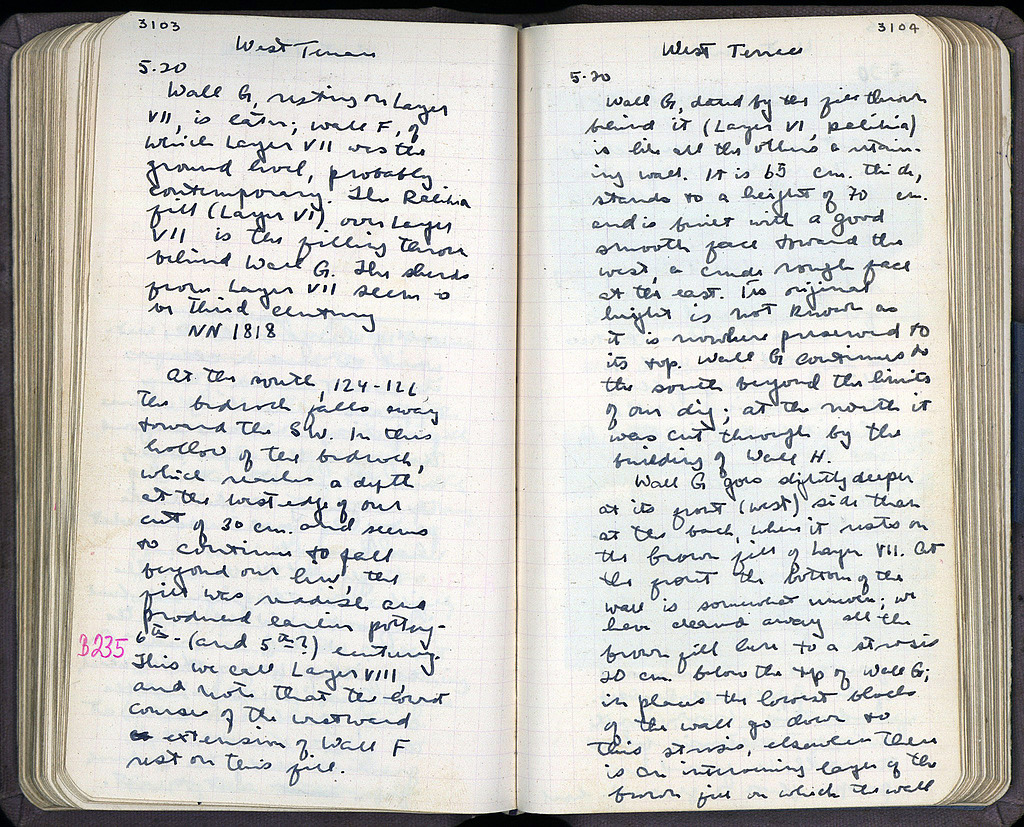 3103
West Terrace
5.20
Wall G, resting on Layer
VII, is later; Wall F, of
which Layer VII was the
ground level, probably
contemporary. The Relikia
fill (Layer VI) over Layer
VII is the filling thrown
behind Wall G. The sherds
from Layer VII seem to
be third century
NN 1818
At the south, 124-126,
the bedrock falls away
toward the SW. In this
hollow of the bedrock,
which reaches a depth
at the west edge of our
cut of 30 cm. and seems
to continue to fall
beyond our line, the
fill was reddish and
produced earlier pottery-
B235
6th- (and 5th?) century.
This we call Layer VIII,
and note that the lowest
course of the westward
extension of Wall F
rest on this fill.
3104
West Terrace
5.20
Wall G, dated by the fill thrown
behind it (Layer VI, Relikia)
is like all the others a retain-
ing wall. It is 65 cm. thick,
stands to a height of 70 cm.
and is built with a good
smooth face toward the
west, a crude rough face
at the east. Its original
height is not known as
it is nowhere preserved to
its top. Wall G continues to
the south beyond the limits
of our dig; at the north it
was cut through by the
building of Wall H.
Wall G goes slightly deeper
at its front (west) side than
at the back, where it rests on
the brown fill of Layer VII. At
the front the bottom of the
wall is somewhat uneven; we
have cleared away all the
brown fill here to a strosis
20 cm. below the top of Wall G;
in places the lowest blocks
of the wall go down to
this strosis, elsewhere there
is an intervening layer of the
brown fill on which the wall